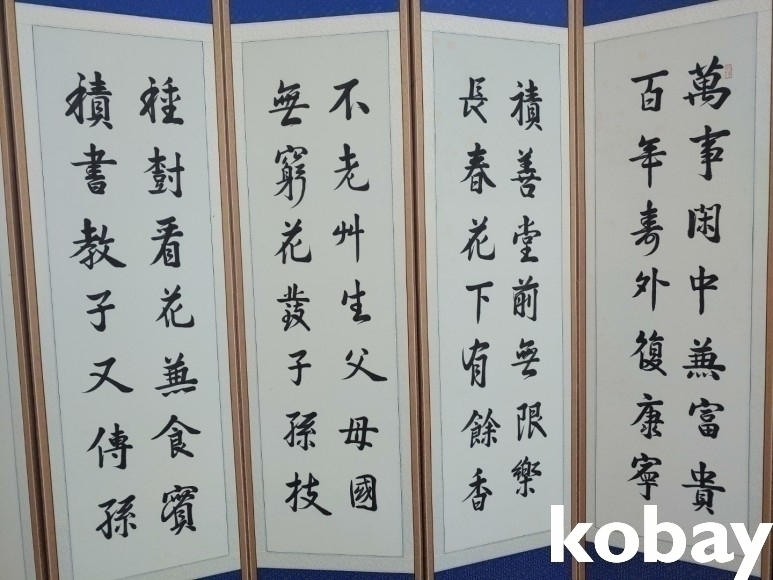 萬事閑中兼富貴
百年壽外復康寧
積善堂前無限樂
長春花下有餘香
不老艸生父母國
無窮花發子孫枝
種對看花兼食實
積書教子又傳孫
kobay